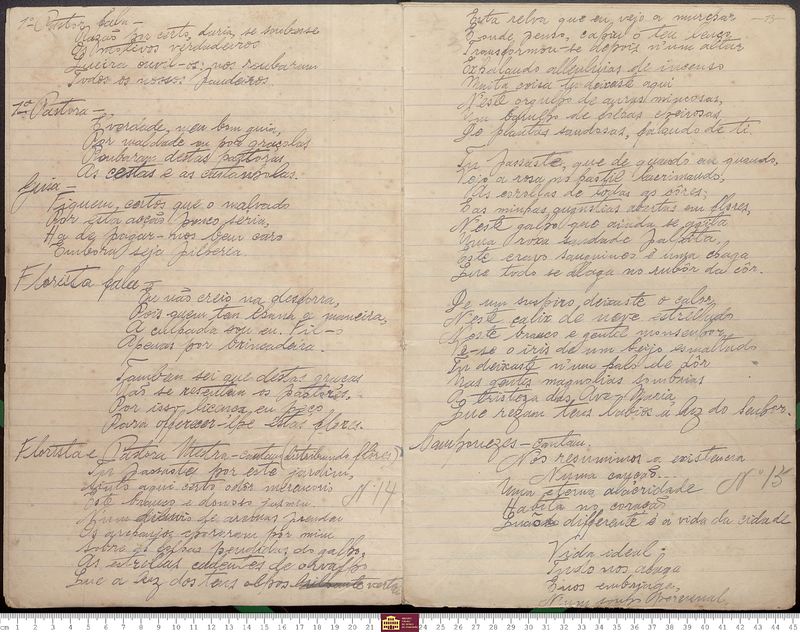 1º Pastor fala —
Razão por certo, daria, se soubesse
Os motivos verdadeiros
Queira ouvil-os: nos roubaram
Todos os nossos pandeiros.
1ª Pastora —
É verdade, meu bom guia,
Por maldade ou por graçolas
Roubaram destas pastoras
As cestas e as castanholas.
Guia —
Fiquem, certos que o malvado
Por esta acção pouco séria,
Ha de pagar-nos bem caro
Embora seja pilheria.
Florista falla —
Eu não creio na desforra,
Pois quem tem esana a maneira,
A culpada sou eu. Fil-o
Apenas por brincadeira.
Tambem sei que destas graças
Não se resentem os pastores.
Por isso, licença, eu peço
Para offerecer-lhe estas flores.
Florista e Pastora Mestra — cantam (distribuindo flores)
Tu passaste por este jardim,
Sinto aqui certo odor merencorio
Nº 14
Este branco e donoso jasmim
Num diluvio de aromas
Os arcanjos choraram por mim
Sobre as folhas pendidas do galho,
As estrellas cadentes de orvalho
Que a luz dos teus olhos verte
— 13 —
Esta relva que eu vejo a murchar
É onde, penso, cahiu o teu lenço
Transformou-se depois n'um altar
Exhalando alleluias de incenso
Muita coisa tu deixaste aqui
N'este orgulho de auras mimosas,
Um barulho de
De plantas saudosas, falando de ti.
Tu passaste, que de quando em quando,
Vejo a rosa no hastil lacrimando,
As corollas de todas as côres;
E as minhas angustias abertas em flores,
N'este galho que ainda se agita
Uma roxa saudade palpita,
Este cravo sanguineo é uma chaga
Que todo se alaga no rubôr da côr.
De um suspiro, deixaste o calor,
N'este calix de neve estrellado
N'este branco e gentil monsenhor,
Vê-se o iris de um beijo esmaltado
Tu deixaste n'um halo de dôr
Nas gentis magnolias sombrias
A tristeza das Ave-Marias
Que rezam teus labios á luz do Senhor.
Camponezes — cantam.
Nós resumimos a existencia
Numa canção...
Uma eterna alacridade
Nº 15
Habita no coração
Quão differente é a vida da cidade
Vida ideal;
Tudo nos afaga
E nos embriaga,
Num